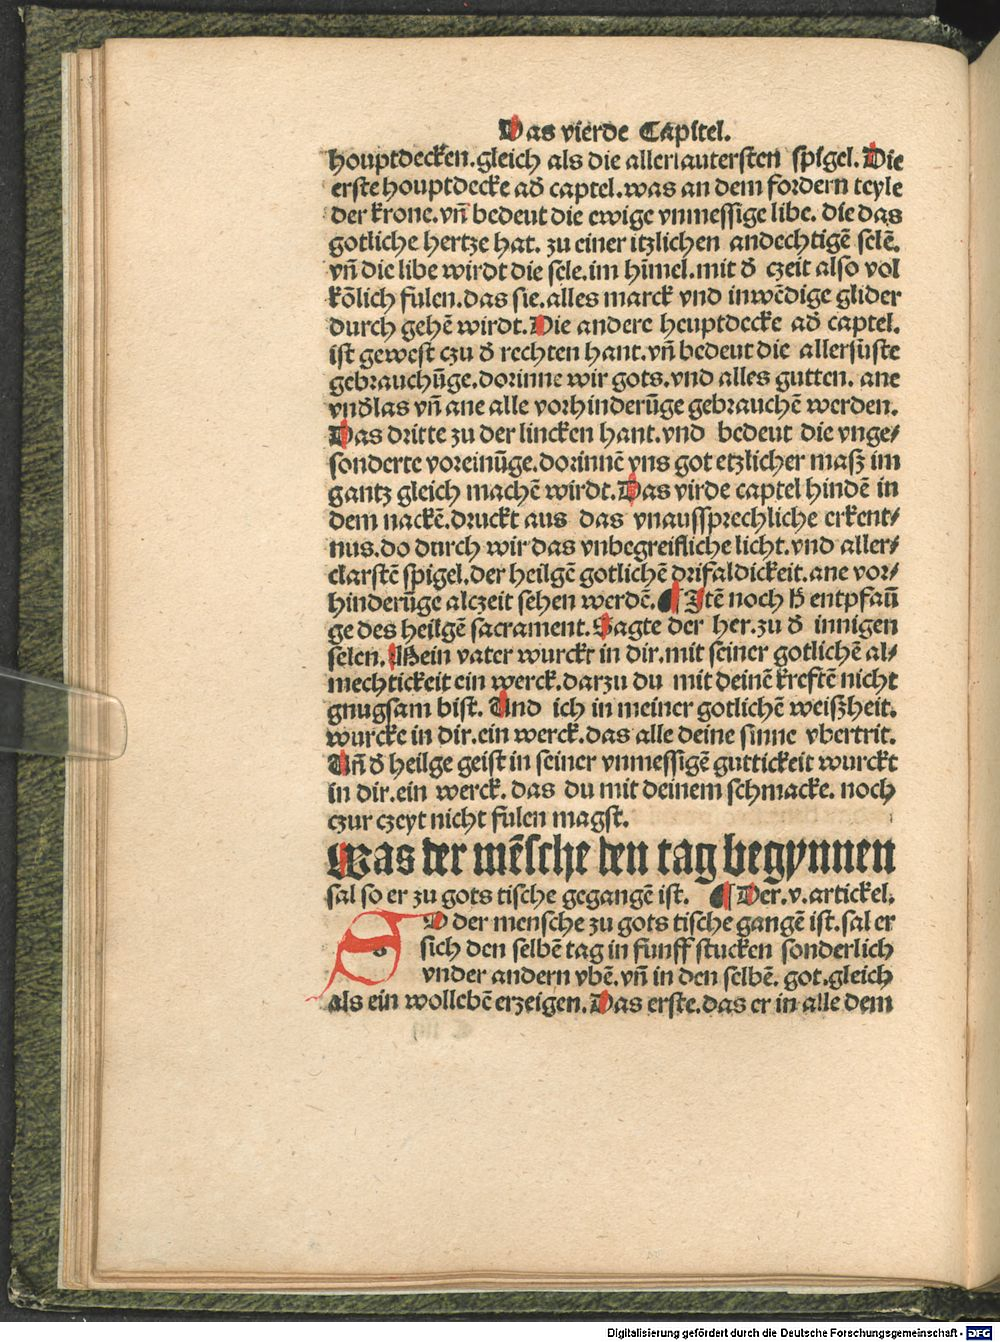 Das vierde Capitel.
houptdecken.gleich als die allerlautersten spigel.Die
erste houptdecke ad̛ captel.was an dem fordern teyle
der krone.vn̄ bedeut die ewige vnmessige libe. die das
gotliche hertze hat. zu einer itzlichen andechtigē selē.
vn̄ die libe wirdt die sele.im hīmel.mit d̛ czeit also vol
kōlich fulen.das sie.alles marck vnd inwēdige glider
durch gehē wirdt.Die andere heuptdecke ad̛ captel.
ist gewest czu d̛ rechten hant.vn̄ bedeut die allersuste
gebrauchūge.dorinne wir gots.vnd alles gutten. ane
vnd̛las vn̄ ane alle vorhinderūge gebrauchē werden.
Das dritte zu der lincken hant.vnd bedeut die vnge⸗
sonderte voreinūge.dorinnē vns got etzlicher masz im
gantz gleich machē wirdt.Das virde captel hindē in
dem nackē.druckt aus das vnaussprechliche erkent⸗
nus.do durch wir das vnbegreifliche licht.vnd aller⸗
clarstē spigel.der heilgē gotlichē drifaldickeit.ane vor⸗
hinderūge alczeit sehen werdē.¶ Itē noch d̛ entpfaū
ge des heilgē sacrament.Sagte der her.zu d̛ innigen
selen.Mein vater wurckt in dir.mit seiner gotlichē al⸗
mechtickeit ein werck.darzu du mit deinē kreftē nicht
gnugsam bist. Und ich in meiner gotlichē weiszheit.
wurcke in dir.ein werck.das alle deine sinne vbertrit.
Un̄ d̛ heilge geist in seiner vnmessigē guttickeit wurckt
in dir.ein werck. das du mit deinem schmacke. noch
czur czeyt nicht fulen magst.
Was der mēsche den tag begynnen
sal so er zu gots tische gegangē ist. ¶ Der.v.artickel.
So der mensche zu gots tische gangē ist.sal er
sich den selbē tag in funff stucken sonderlich
vnder andern vbē.vn̄ in den selbē. got.gleich
als ein wollebē erzeigen.Das erste.das er in alle dem
Digitalisierung gefördert durch die Deutsche Forschungsgemeinschaft - DFG